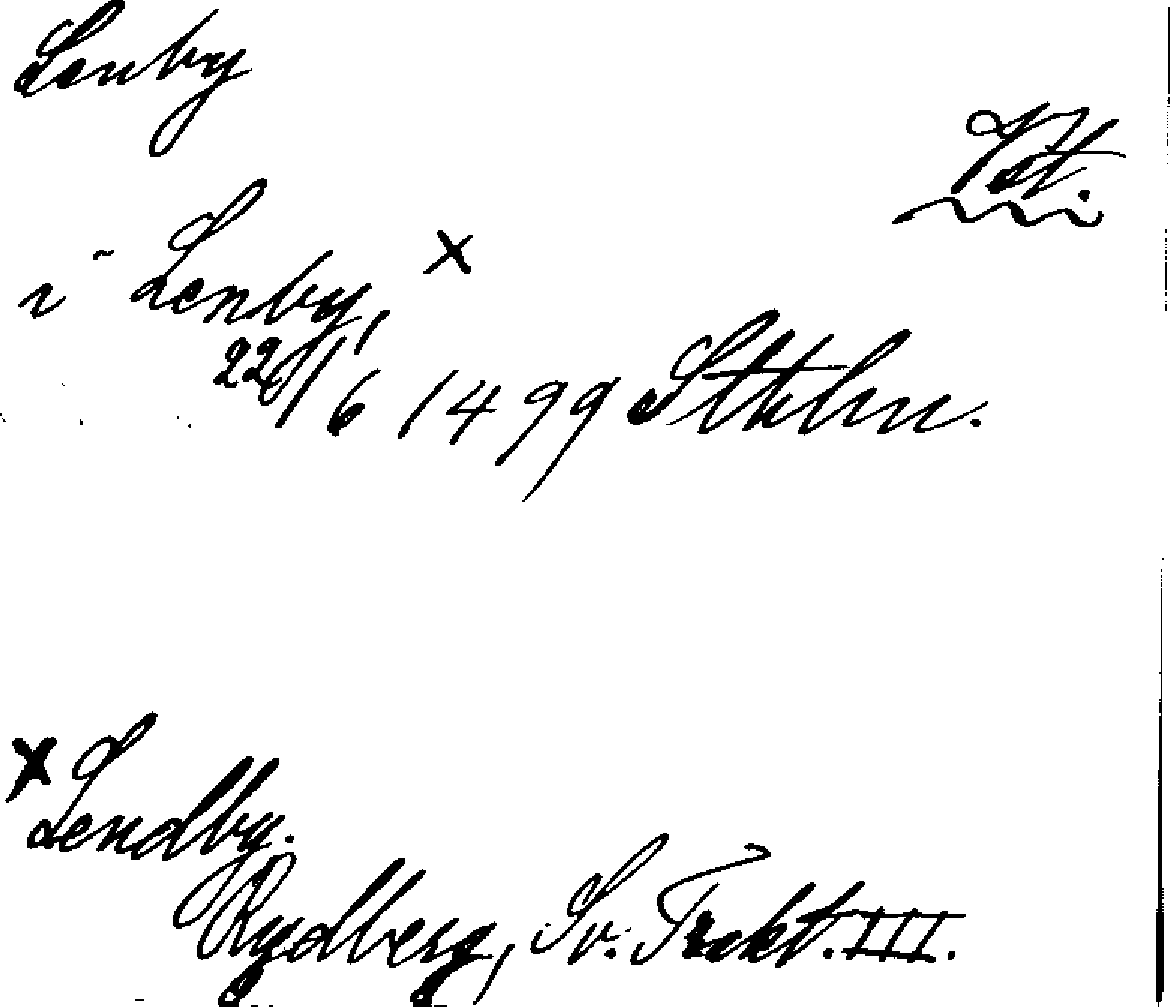 Lenby
Vst.
i Lenby, x
22/6 1499 Sthlm.
x Lendby.
Rydberg, Sv. Trakt. III.